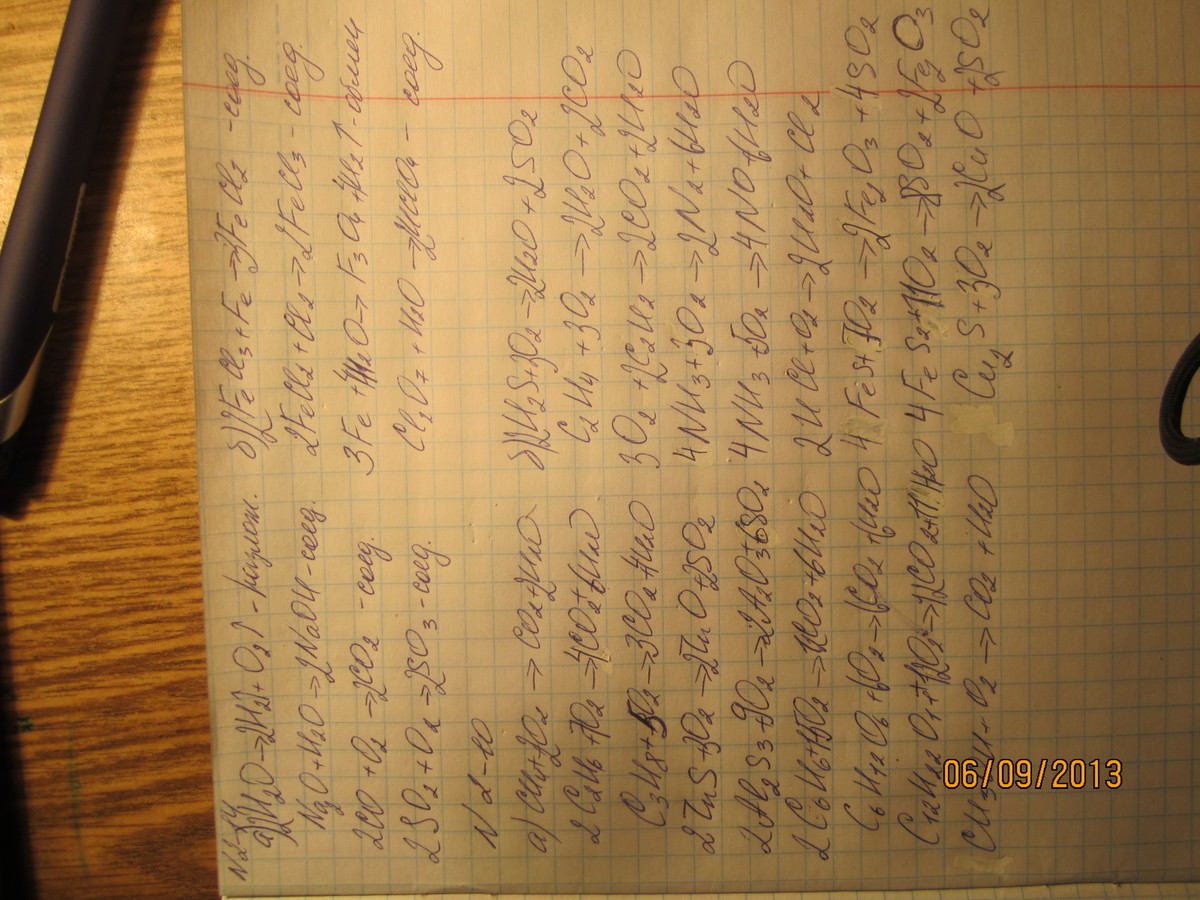 а) 2H2O → 2H2 + O2↑ - разлож.
Na2O + H2O → 2NaOH - соед.
2CO + O2 → 2CO2 - соед.
2SO2 + O2 → 2SO3 - соед.
б) 2FeCl3 + Fe → 3FeCl2 - соед.
2FeCl2 + Cl2 → 2FeCl3 - соед.
3Fe + 4H2O → F3O4 + 4H2↑ - обмен
Cl2O7 + H2O → 2HClO4 - соед.
N 2-10
а) CH4 + 2O2 → CO2 + 2H2O
2C2H6 + 7O2 → 4CO2 + 6H2O
C3H8 + 5O2 → 3CO2 + 4H2O
2ZnS + 3O2 → 2ZnO + 2SO2
2Al2S3 + 9O2 → 2Al2O3 + 6SO2
2C6H6 + 15O2 → 12CO2 + 6H2O
C6H12O6 + 6O2 → 6CO2 + 6H2O
C12H22O11 + 12O2 → 12CO2 + 11H2O
O2 → CO2 + H2O
б) 2H2S + 3O2 → 2H2O + 2SO2
C2H4 + 3O2 → 2H2O + 2CO2
3O2 + 2C2H2 → 2CO2 + 2H2O
4NH3 + 3O2 → 2N2 + 6H2O
4NH3 + 5O2 → 4NO + 6H2O
2HCl + O2 → 2H2O + Cl2
4FeS + 7O2 → 2Fe2O3 + 4SO2
4FeS2 + 11O2 → 8SO2 + 2Fe2O3
Cu2S + 3O2 → 2CuO + 2SO2
06/09/2013